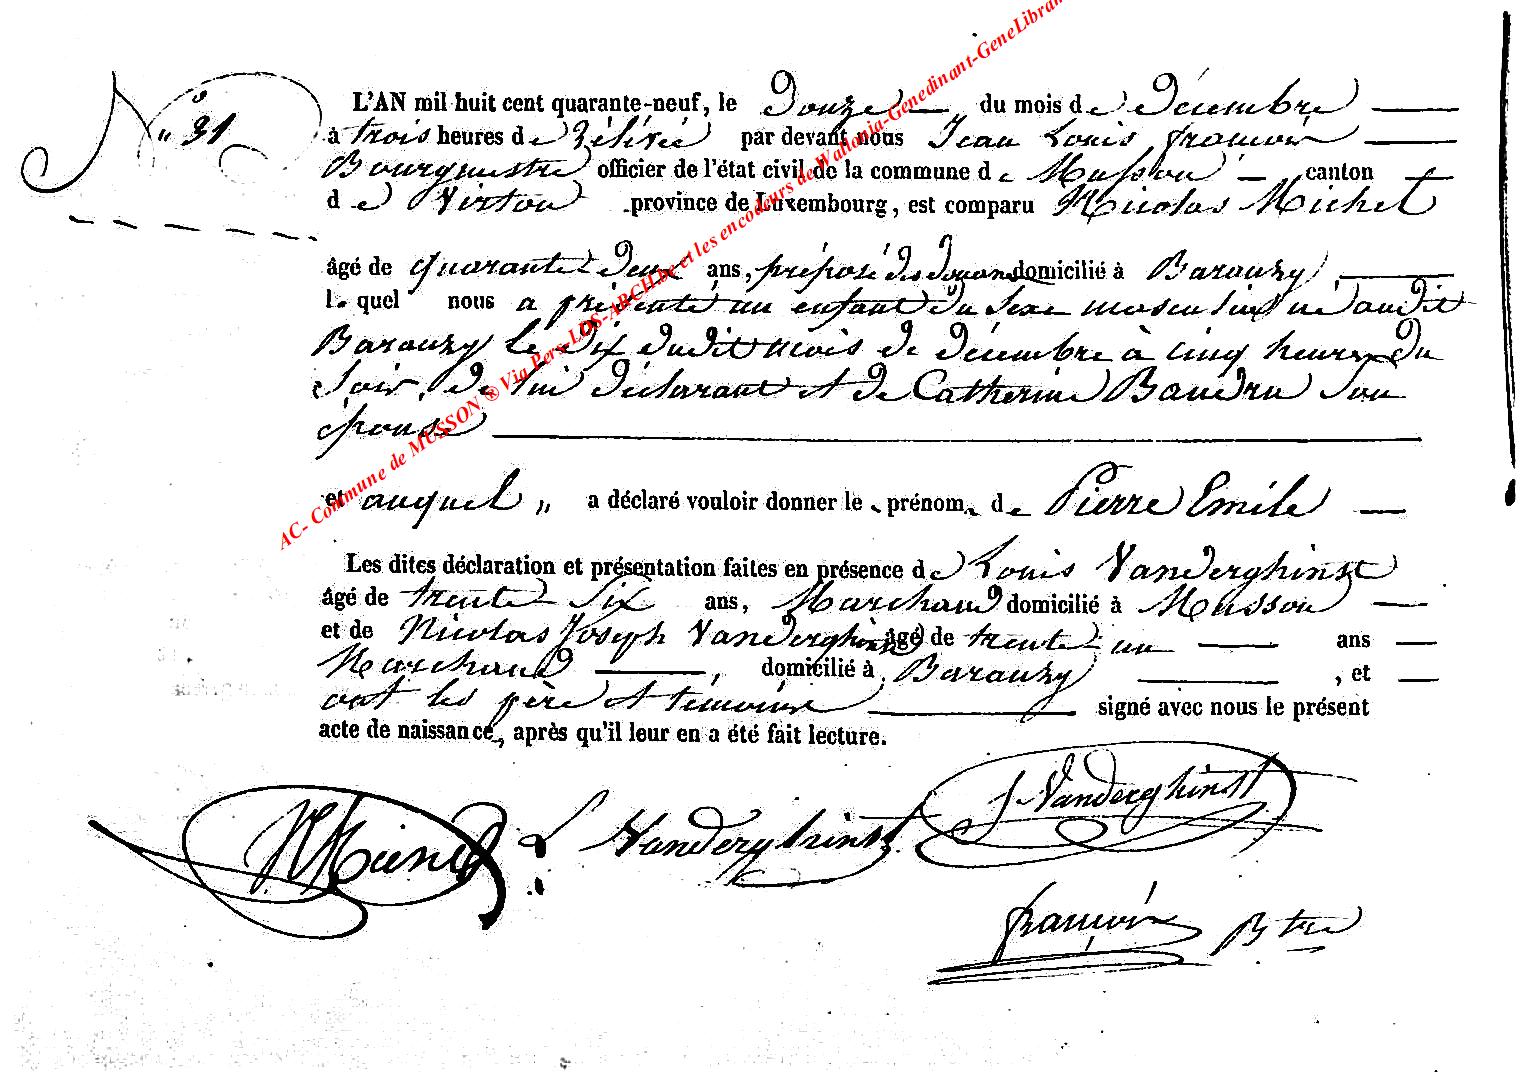 N° 31
L'AN mil huit cent quarante-neuf, le Douze du mois de Décembre
à trois heures de rélévée par devant nous Jean Louis françois
Bourgmestre officier de l'état civil de la commune de Musson canton
de Virton province de Luxembourg, est comparu Nicolas Michel
âgé de quarante-deux ans, préposé des douanes domicilié à Baranzy
lequel nous a présenté un enfant du sexe masculin né audit
Baranzy le dix dudit mois de décembre à cinq heures du
soir, de lui déclarant et de Catherine Baudru son
épouse
et auquel " a déclaré vouloir donner le prénom de Pierre Emile
Les dites déclaration et présentation faites en présence de Louis Vanderghinst
âgé de trente-six ans, Marchand domicilié à Musson
et de Nicolas Joseph Vanderghinst âgé de trente-un ans
Marchand, domicilié à Baranzy, et
ont les père et témoins signé avec nous le présent
acte de naissance, après qu'il leur en a été fait lecture.
L Vanderghinst
J Vanderghinst
françois Btre
AC- Commune de MUSSON ® Via Pers-LDS-ARCH.be et les encodeurs de Wallonia-Genedinant-GeneLibran